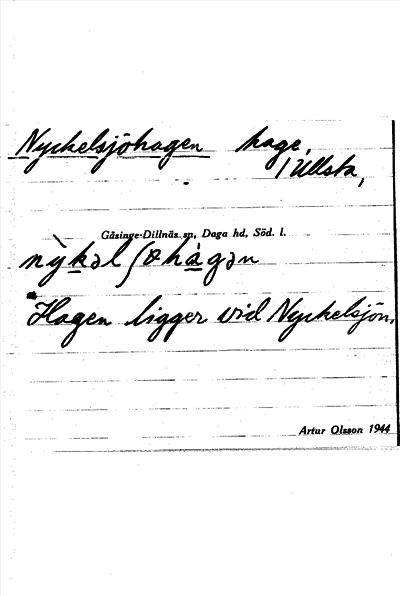 Nyckelsjöhagen hage,
/ Ullsta,
Gåsinge-Dillnäs sn, Daga hd, Söd. l.
nỳkəlʃøhàgən
Hagen ligger vid Nyckelsjön.
Artur Olsson 1944